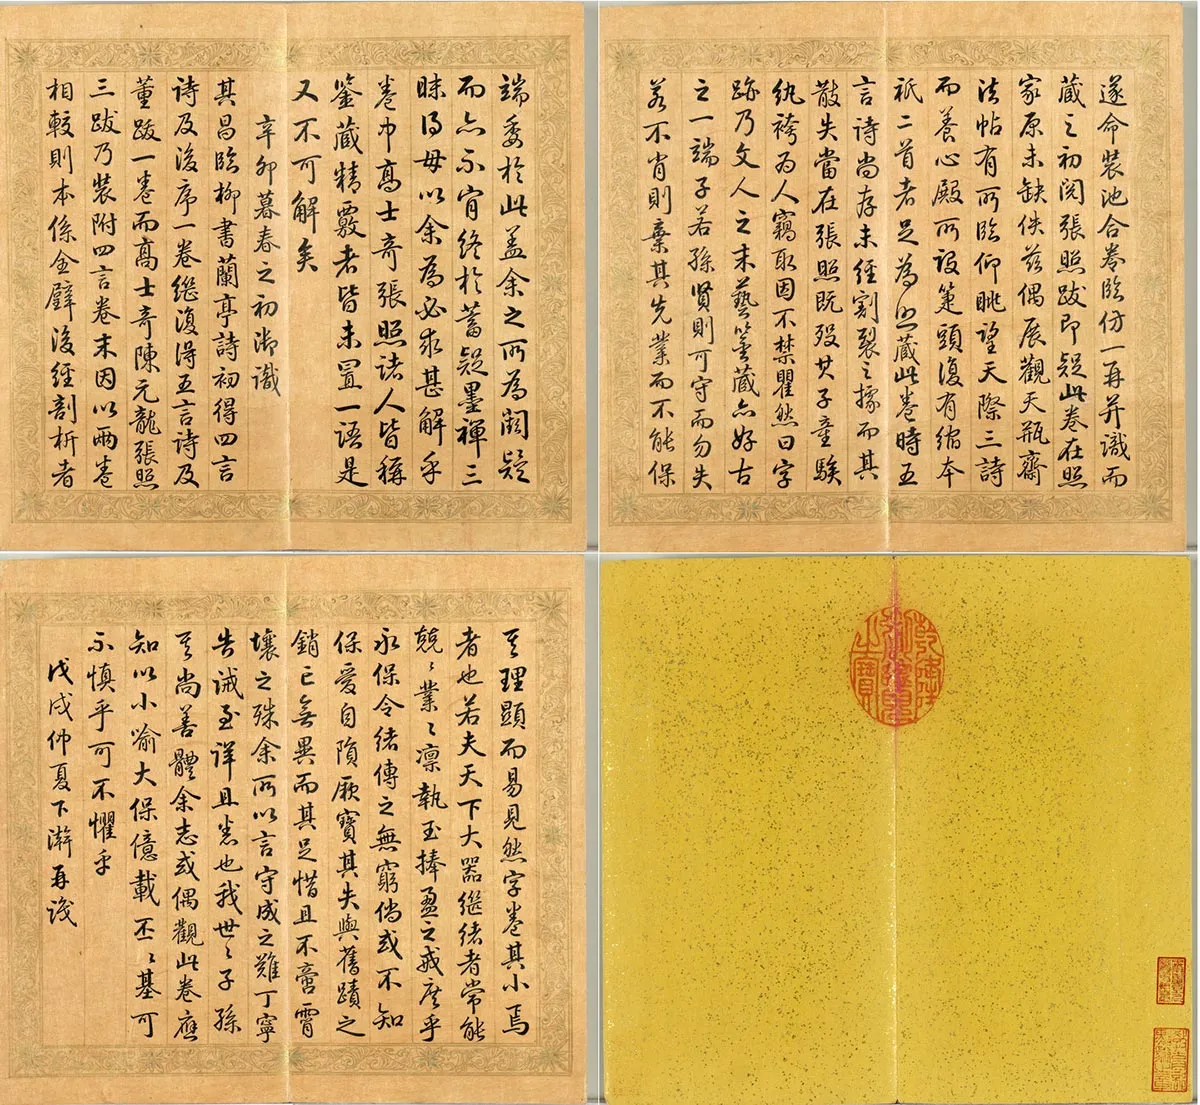 端委於此盖余之所為闕疑
而亦不肯終於蓄疑墨禪三
昧得毋以余為必求甚解乎
卷中高士奇張照諸人皆稱
鑒藏精覈者皆未置一語是
又不可解矣
辛卯暮春之初御識
其昌臨柳書蘭亭詩初得四言
詩及後序一卷繼復得五言詩及
董跋一卷而高士奇陳元龍張照
三跋乃裝附四言卷末因以兩卷
相較則本係全璧後經剖析者
遂命裝池合卷臨仿一再并識而
藏之初閱張照跋即疑此卷在照
家原未缺佚茲偶展觀天瓶齋
法帖有所臨仰眺望天際三詩
而養心殿所設筆頭復有縮本
祇二首者足為照藏此卷時五
言詩尚存未經割裂之據而其
散失當在張照既歿其子童騃
紈袴為人竊取因不禁瞿然曰字
跡乃文人之末藝篋藏亦好古
之一端子若孫賢則可守而勿失
若不肖則棄其先業而不能保
其理顯而易見然字卷其小焉
者也若夫天下大器繼緒者常能
兢〻業〻凛執玉捧盈之戒庶乎
永保令緒傳之無窮倘或不知
保愛自隕厥寶其失與舊蹟之
銷亡無異而其足惜且不啻霄
壤之殊余所以言守成之難丁寧
告誡至詳且悉也我世〻子孫
其尚善體余志或偶觀此卷應
知以小喻大保億載丕〻基可
不慎乎可不懼乎
戊戌仲夏下澣再識
乾隆御覽之寶